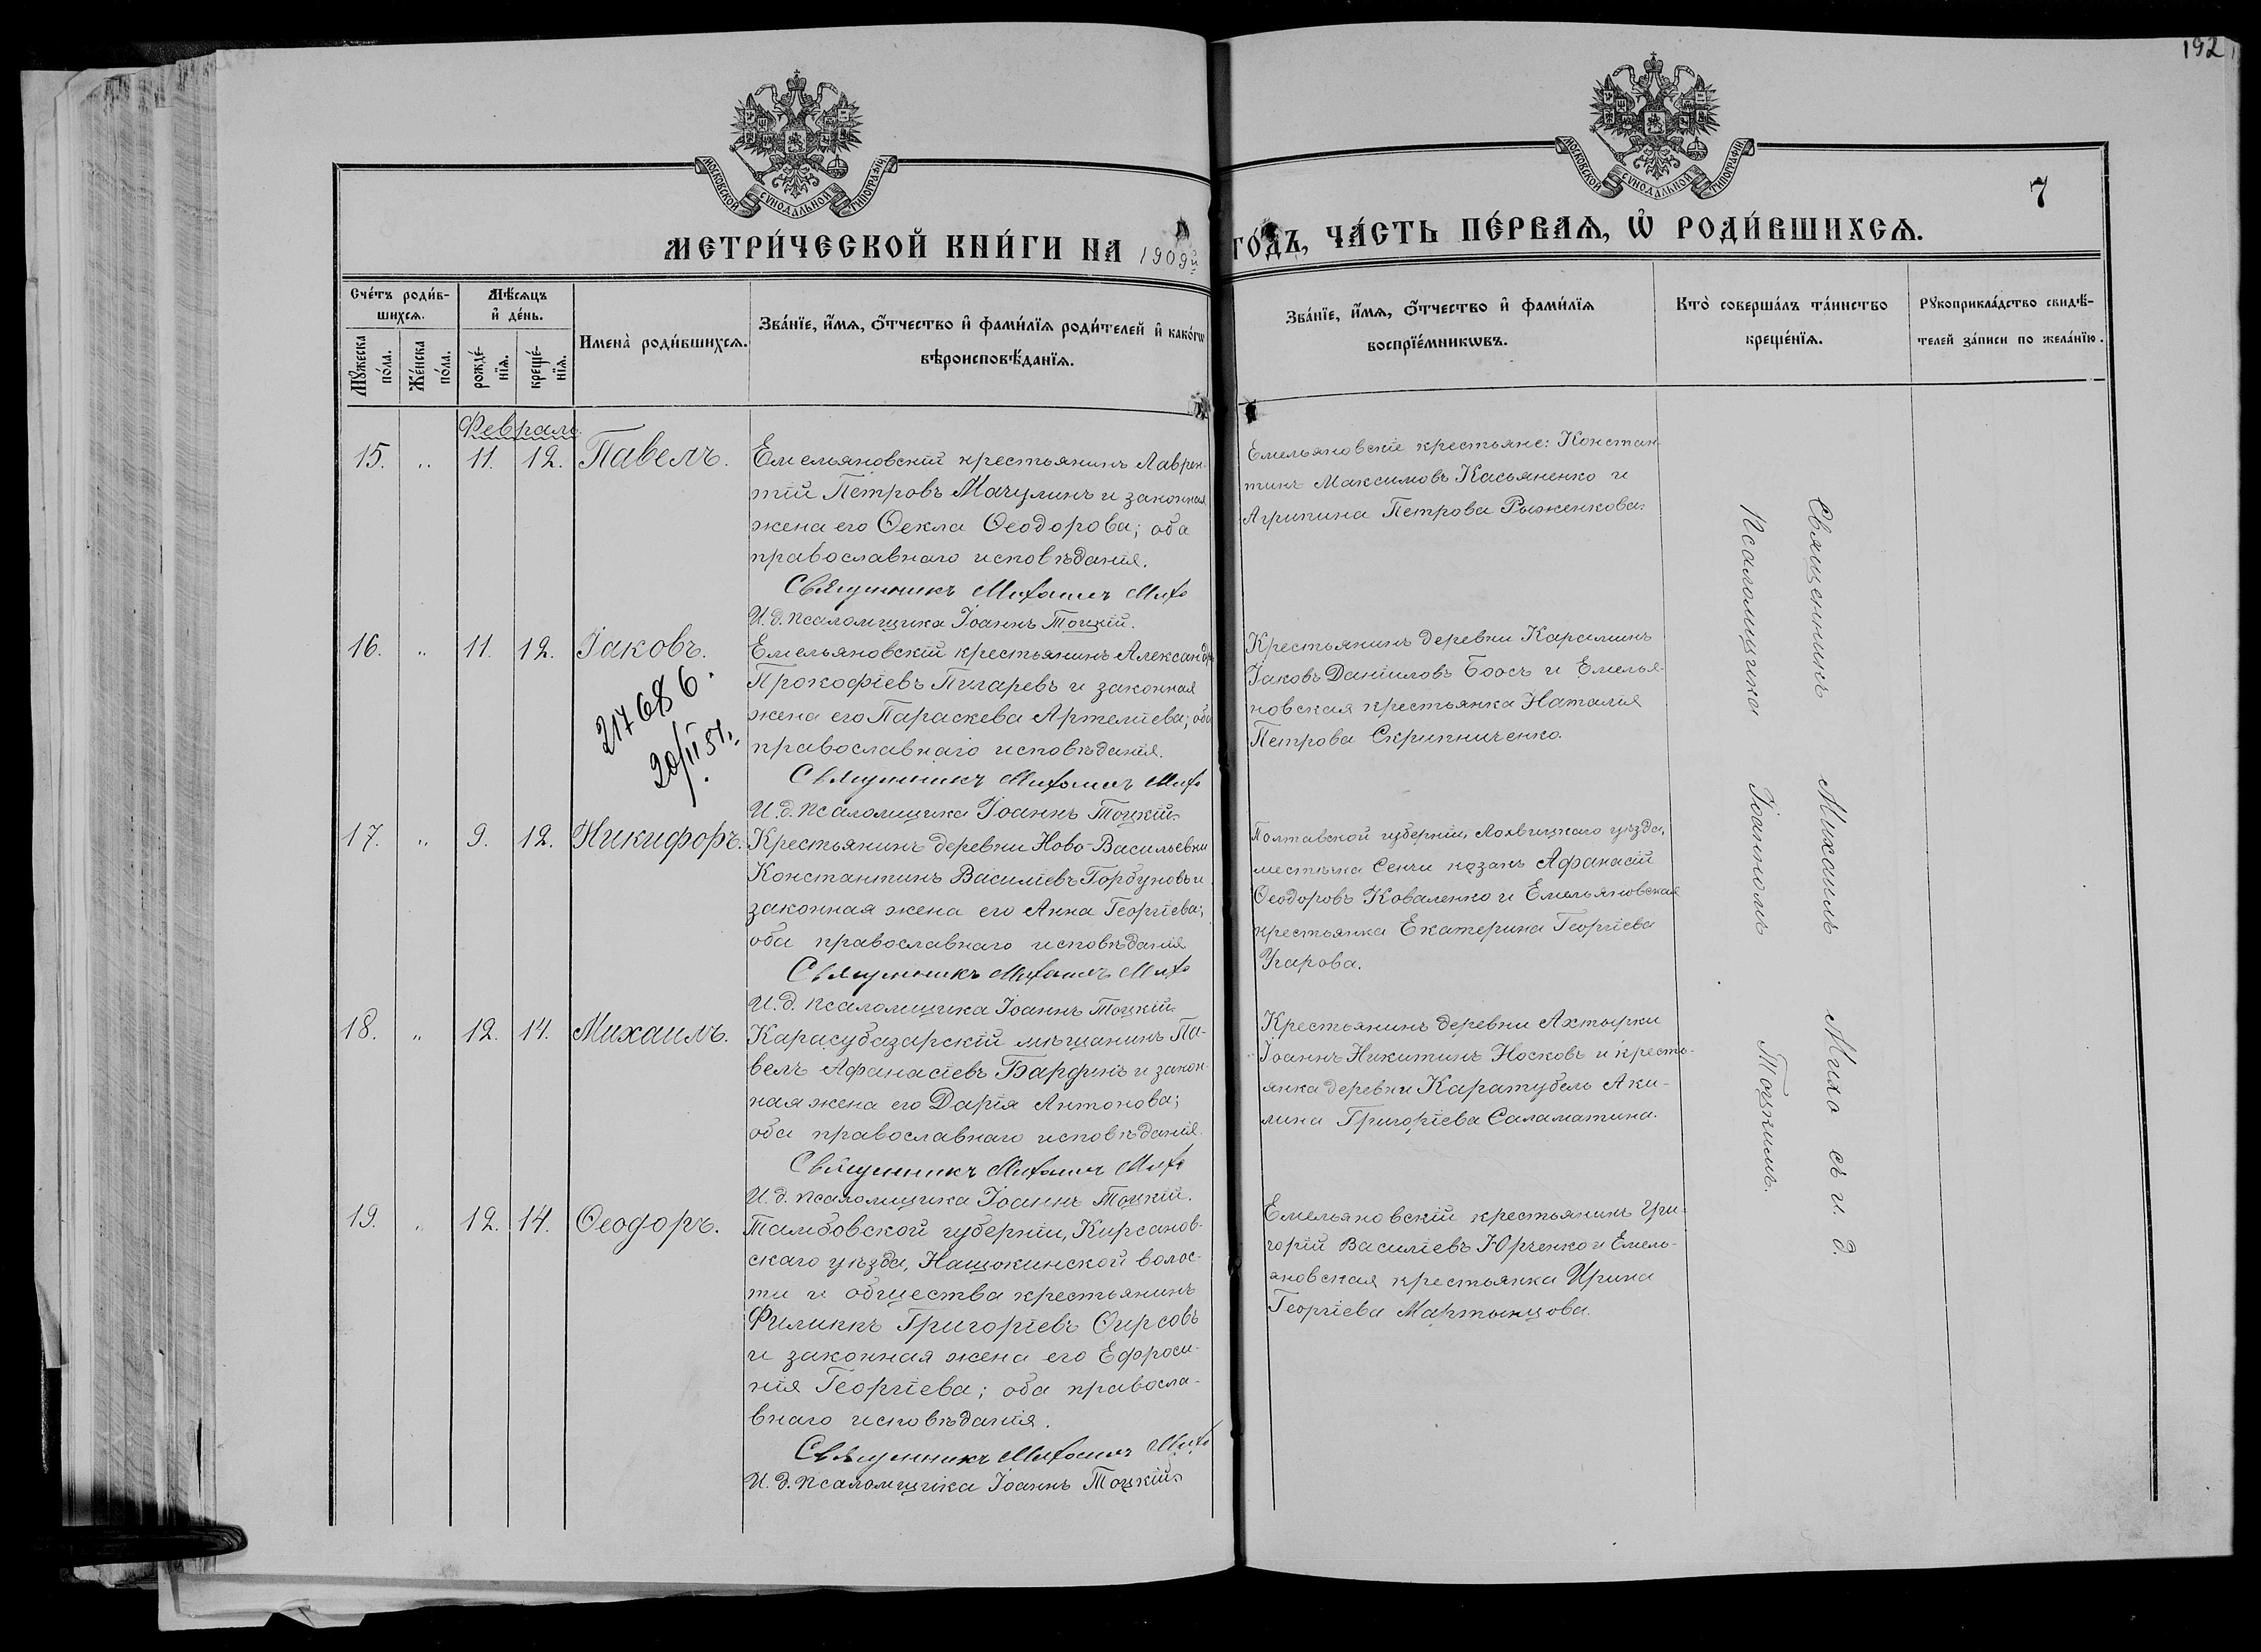 192
МОСКОВСКОЙ СѴНОДАЛЬНОЙ ТИПОГРАФІИ
МОСКОВСКОЙ СѴНОДАЛЬНОЙ ТИПОГРАФІИ
7
МЕТРИ́ЧЕСКОЙ КНИ́ГИ НА 1909й ГО́ДЪ, ЧА́СТЬ ПЕ́РВАѦ, Ѡ҆ РОДИ́ВШИХСѦ.
Сче́тъ роди́в-
шихсѧ.
Мꙋ́жеска
по́ла.
Же́нска
по́ла.
Мѣ́сѧцъ
и҆ де́нь.
рожде́-
нїѧ.
креще́-
нїѧ.
Имена̀ роди́вшихсѧ.
Зва́нїе, и҆́мѧ, ѻ҆́тчество и҆ фами́лїѧ роди́телей и҆ како́гѡ
вѣроисповѣ́данїѧ.
Зва́нїе, и҆́мѧ, ѻ҆́тчество и҆ фами́лїѧ
воспрїе́мникѡвъ.
Кто̀ соверша́лъ та́инство
креще́нїѧ.
Рꙋкоприкла́дство свидѣ́-
телей за́писи по жела́нїю.
Февраль.
15. „ 11. 12. Павелъ.
Емельяновскій крестьянинъ Лаврен-
тій Петровъ Мачулинъ и законная
жена его Ѳекла Ѳеодорова; оба
православнаго исповѣданія.
Священникъ Михаилъ Михо
И. д. псаломщика Іоаннъ Тоцкій.
Емельяновскіе крестьяне: Констан-
тинъ Максимовъ Касьяненко и
Агрипина Петрова Рыженкова.
16. „ 11. 12. Іаковъ.
217686.
20/II 51.
Емельяновскій крестьянинъ Александръ
Прокофіевъ Пугаревъ и законная
жена его Параскева Артеміева; оба
православнаго исповѣданія.
Священникъ Михаилъ Михо
И. д. псаломщика Іоаннъ Тоцкій.
Крестьянинъ деревни Карамынъ
Іаковъ Даніиловъ Боосъ и Емелья-
новская крестьянка Наталія
Петрова Скрипниченко.
17. „ 9. 12. Никифоръ.
Крестьянинъ деревни Ново-Васильевки
Константинъ Василіевъ Горбуновъ и
законная жена его Анна Георгіева;
оба православнаго исповѣданія
Священникъ Михаилъ Михо
И. д. псаломщика Іоаннъ Тоцкій.
Полтавской губерніи, Лохвицкаго уѣзда,
местечка Сенчи козакъ Афанасій
Ѳеодоровъ Коваленко и Емельяновская
крестьянка Екатерина Георгіева
Угарова.
18. „ 12. 14. Михаилъ.
Карасубазарскій мѣщанинъ Па-
велъ Афанасіевъ Барфинъ и закон-
ная жена его Дарія Антонова;
оба православнаго исповѣданія.
Священникъ Михаилъ Михо
И. д. псаломщика Іоаннъ Тоцкій.
Крестьянинъ деревни Ахтырки
Іоаннъ Никитинъ Носковъ и кресть-
янка деревни Каратубель Аки-
лина Григоріева Саламатина.
19. „ 12. 14. Ѳеодоръ.
Тамбовской губерніи, Кирсанов-
скаго уѣзда, Нащокинской волос-
ти и общества крестьянинъ
Филиппъ Григоріевъ Ѳирсовъ
и законная жена его Ефроси-
нія Георгіева; оба правосла-
внаго исповѣданія.
Священникъ Михаилъ Михо
И. д. псаломщика Іоаннъ Тоцкій.
Емельяновскій крестьянинъ Гри-
горій Василіевъ Юрченко и Емель-
яновская крестьянка Ирина
Георгіева Мартынцова.
Священникъ Михаилъ Михо съ и. д.
Псаломщика Іоанномъ Тоцкимъ.